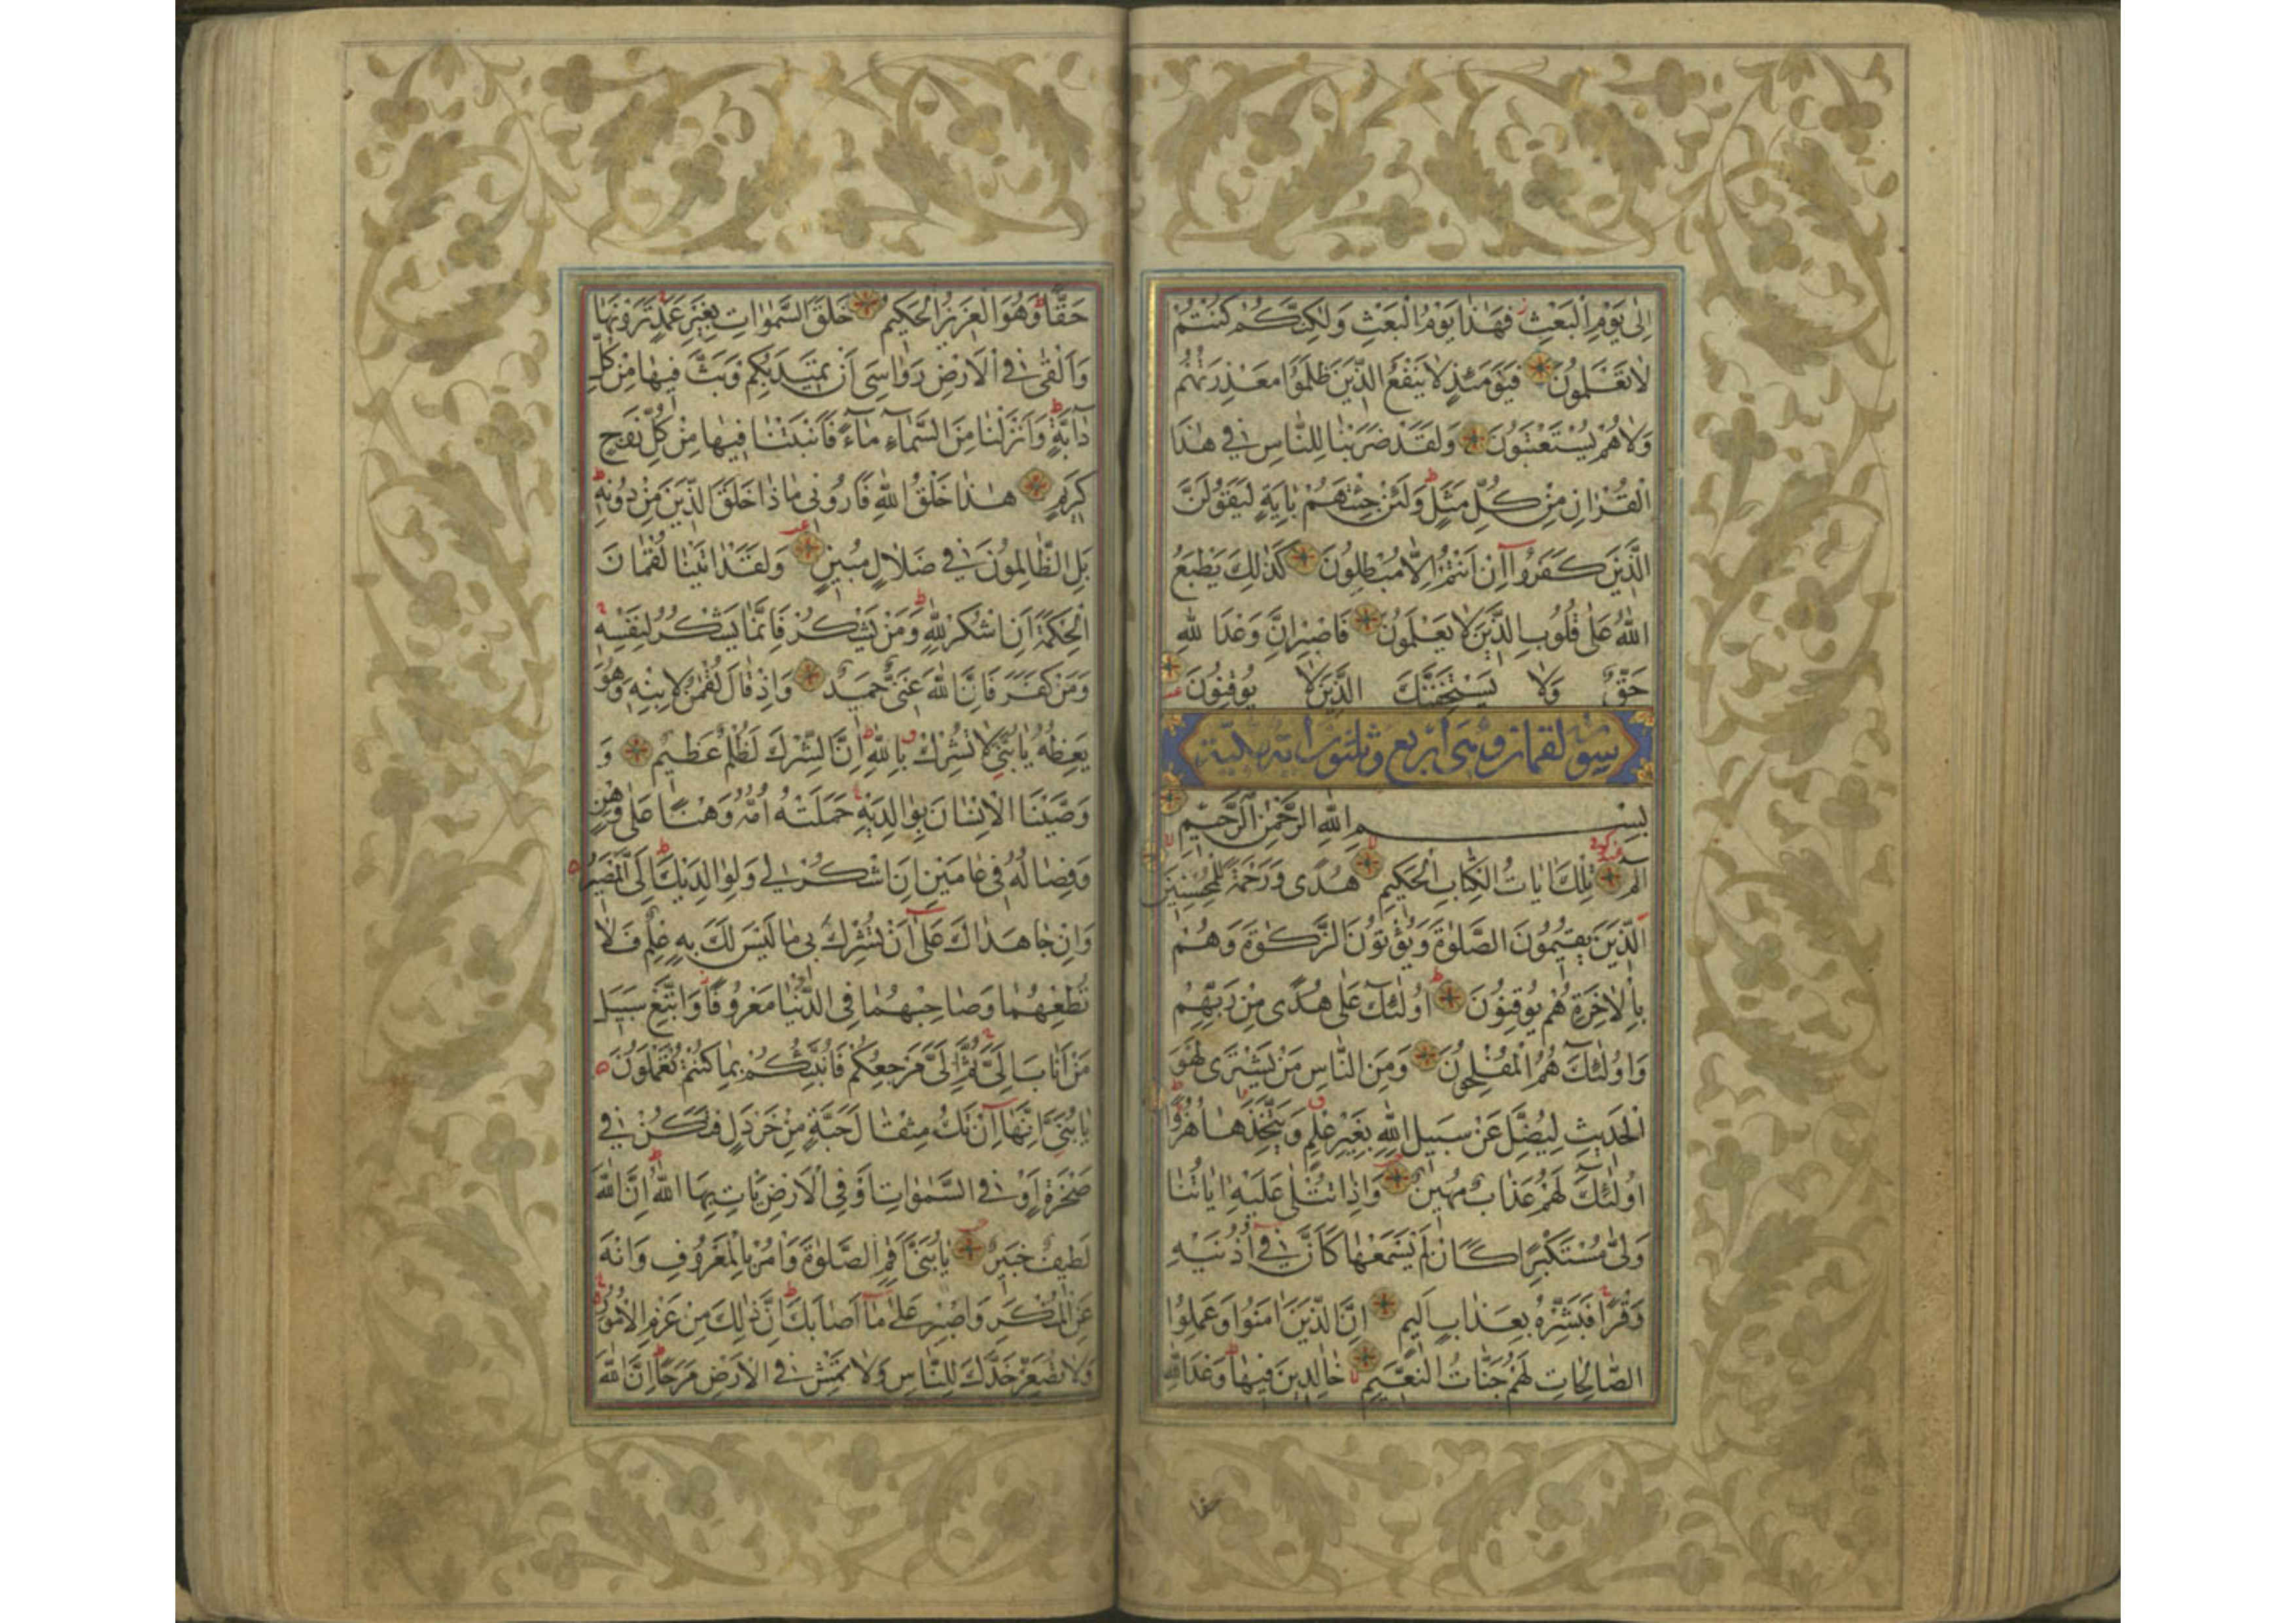 اِلٰى يَوْمِ الْبَعْثِ فَهٰذَا يَوْمُ الْبَعْثِ وَلٰكِنَّكُمْ كُنْتُمْ
لَا تَعْلَمُونَ فَيَوْمَئِذٍ لَا يَنْفَعُ الَّذِينَ ظَلَمُوا مَعْذِرَتُهُمْ
وَلَا هُمْ يُسْتَعْتَبُونَ وَلَقَدْ ضَرَبْنَا لِلنَّاسِ فِي هٰذَا
الْقُرْاٰنِ مِنْ كُلِّ مَثَلٍ وَلَئِنْ جِئْتَهُمْ بِاٰيَةٍ لَيَقُولَنَّ
الَّذِينَ كَفَرُوا اِنْ اَنْتُمْ اِلَّا مُبْطِلُونَ كَذٰلِكَ يَطْبَعُ
اللّٰهُ عَلٰى قُلُوبِ الَّذِينَ لَا يَعْلَمُونَ فَاصْبِرْ اِنَّ وَعْدَ اللّٰهِ
حَقٌّ وَلَا يَسْتَخِفَّنَّكَ الَّذِينَ لَا يُوقِنُونَ
سورة لقمان وهى اربع وثلثون اية مكية
بِسْمِ اللّٰهِ الرَّحْمٰنِ الرَّحِيمِ
الٓمٓ تِلْكَ اٰيَاتُ الْكِتَابِ الْحَكِيمِ هُدًى وَرَحْمَةً لِلْمُحْسِنِينَ
اَلَّذِينَ يُقِيمُونَ الصَّلٰوةَ وَيُؤْتُونَ الزَّكٰوةَ وَهُمْ
بِالْاٰخِرَةِ هُمْ يُوقِنُونَ اُولٰئِكَ عَلٰى هُدًى مِنْ رَبِّهِمْ
وَاُولٰئِكَ هُمُ الْمُفْلِحُونَ وَمِنَ النَّاسِ مَنْ يَشْتَرِى لَهْوَ
الْحَدِيثِ لِيُضِلَّ عَنْ سَبِيلِ اللّٰهِ بِغَيْرِ عِلْمٍ وَيَتَّخِذَهَا هُزُوًا
اُولٰئِكَ لَهُمْ عَذَابٌ مُهِينٌ وَاِذَا تُتْلٰى عَلَيْهِ اٰيَاتُنَا
وَلّٰى مُسْتَكْبِرًا كَاَنْ لَمْ يَسْمَعْهَا كَاَنَّ فِي اُذُنَيْهِ
وَقْرًا فَبَشِّرْهُ بِعَذَابٍ اَلِيمٍ اِنَّ الَّذِينَ اٰمَنُوا وَعَمِلُوا
الصَّالِحَاتِ لَهُمْ جَنَّاتُ النَّعِيمِ خَالِدِينَ فِيهَا وَعْدَ اللّٰهِ
حقا
حَقًّا وَهُوَ الْعَزِيزُ الْحَكِيمُ خَلَقَ السَّمٰوَاتِ بِغَيْرِ عَمَدٍ تَرَوْنَهَا
وَاَلْقٰى فِي الْاَرْضِ رَوَاسِىَ اَنْ تَمِيدَ بِكُمْ وَبَثَّ فِيهَا مِنْ كُلِّ
دَابَّةٍ وَاَنْزَلْنَا مِنَ السَّمَاءِ مَاءً فَاَنْبَتْنَا فِيهَا مِنْ كُلِّ زَوْجٍ
كَرِيمٍ هٰذَا خَلْقُ اللّٰهِ فَاَرُونِى مَاذَا خَلَقَ الَّذِينَ مِنْ دُونِهِ
بَلِ الظَّالِمُونَ فِي ضَلَالٍ مُبِينٍ وَلَقَدْ اٰتَيْنَا لُقْمَانَ
الْحِكْمَةَ اَنِ اشْكُرْ لِلّٰهِ وَمَنْ يَشْكُرْ فَاِنَّمَا يَشْكُرُ لِنَفْسِهِ
وَمَنْ كَفَرَ فَاِنَّ اللّٰهَ غَنِىٌّ حَمِيدٌ وَاِذْ قَالَ لُقْمٰنُ لِابْنِهِ وَهُوَ
يَعِظُهُ يَا بُنَىَّ لَا تُشْرِكْ بِاللّٰهِ اِنَّ الشِّرْكَ لَظُلْمٌ عَظِيمٌ وَ
وَصَّيْنَا الْاِنْسَانَ بِوَالِدَيْهِ حَمَلَتْهُ اُمُّهُ وَهْنًا عَلٰى وَهْنٍ
وَفِصَالُهُ فِي عَامَيْنِ اَنِ اشْكُرْ لِي وَلِوَالِدَيْكَ اِلَىَّ الْمَصِيرُ
وَاِنْ جَاهَدَاكَ عَلٰى اَنْ تُشْرِكَ بِى مَا لَيْسَ لَكَ بِهِ عِلْمٌ فَلَا
تُطِعْهُمَا وَصَاحِبْهُمَا فِي الدُّنْيَا مَعْرُوفًا وَاتَّبِعْ سَبِيلَ
مَنْ اَنَابَ اِلَىَّ ثُمَّ اِلَىَّ مَرْجِعُكُمْ فَاُنَبِّئُكُمْ بِمَا كُنْتُمْ تَعْمَلُونَ
يَا بُنَىَّ اِنَّهَا اِنْ تَكُ مِثْقَالَ حَبَّةٍ مِنْ خَرْدَلٍ فَتَكُنْ فِي
صَخْرَةٍ اَوْ فِي السَّمٰوَاتِ اَوْ فِي الْاَرْضِ يَاْتِ بِهَا اللّٰهُ اِنَّ اللّٰهَ
لَطِيفٌ خَبِيرٌ يَا بُنَىَّ اَقِمِ الصَّلٰوةَ وَاْمُرْ بِالْمَعْرُوفِ وَانْهَ
عَنِ الْمُنْكَرِ وَاصْبِرْ عَلٰى مَا اَصَابَكَ اِنَّ ذٰلِكَ مِنْ عَزْمِ الْاُمُورِ
وَلَا تُصَعِّرْ خَدَّكَ لِلنَّاسِ وَلَا تَمْشِ فِي الْاَرْضِ مَرَحًا اِنَّ اللّٰهَ